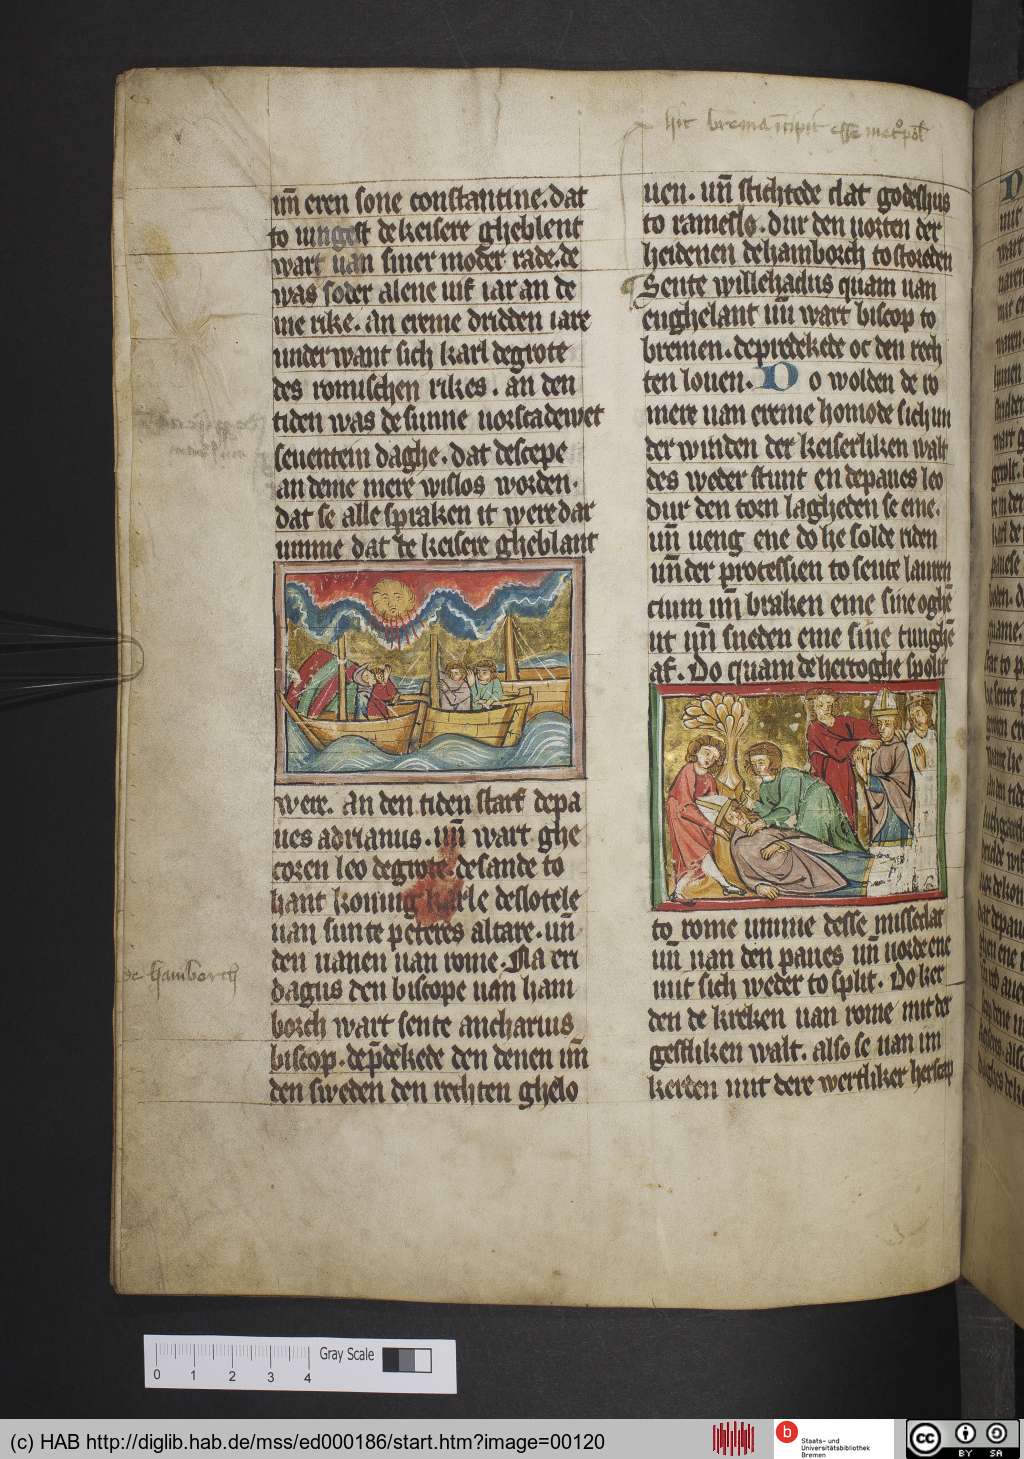 hic brema incipit esse metropol
un̄ eren sone constantine. dat
to iungest de keisere gheblent
wart uan siner moder rade. de
was soder alene uif iar an de
me rike. an deme dridden iare
under want sich karl de grote
des romischen rikes. an den
tiden was de sunne uorscadewet
seuentein daghe. dat descepe
an deme mere wislos worden.
dat se alle spraken it were dar
umme dat te keisere gheblant
were. an den tiden starf depa
ues adrianus. un̄ wart ghe
coren leo degrote. desande to
hant koning karle deslotele
uan sunte peteres altare. un̄
den uanen uan rome. Na eri
dagus den biscope uan ham
borch wart sente ancharius
biscop. dep̄dekede den denen un̄
den sweden den rechten ghelo
de hamborch
uen. un̄ stichtede dat godeshus
to rameslo. dur den uorten der
heidenen dehamborch to storeden
Sente willehadus quam uan
enghelant un̄ wart biscop to
bremen. depredekede oc den rech
ten louen. Do wolden de ro
mere uan ereme homode sich un
der winden der keiserliken walt
des weder stunt en depaues leo
dur den toen lagheden se eme.
un̄ ueng ene do he solde riden
un̄der processien to sente lauren
cium un̄ braken eme sine oghē
ut un̄ sneden eme sine tunghē
af. Do quam de hertoghe spolit
to rome umme desse missedat
un̄ nan den paues un̄ uorde ene
mit sich weder to split. Do ker
den de kreken uan rome mit der
gestliken walt. also se uan im
kerden mit dere wertliker herscap
0 1 2 3 4 Gray Scale
(c) HAB http://diglib.hab.de/mss/ed000186/start.htm?image=00120
Staats- und
Universitätsbibliothek
Bremen
cc BY SA